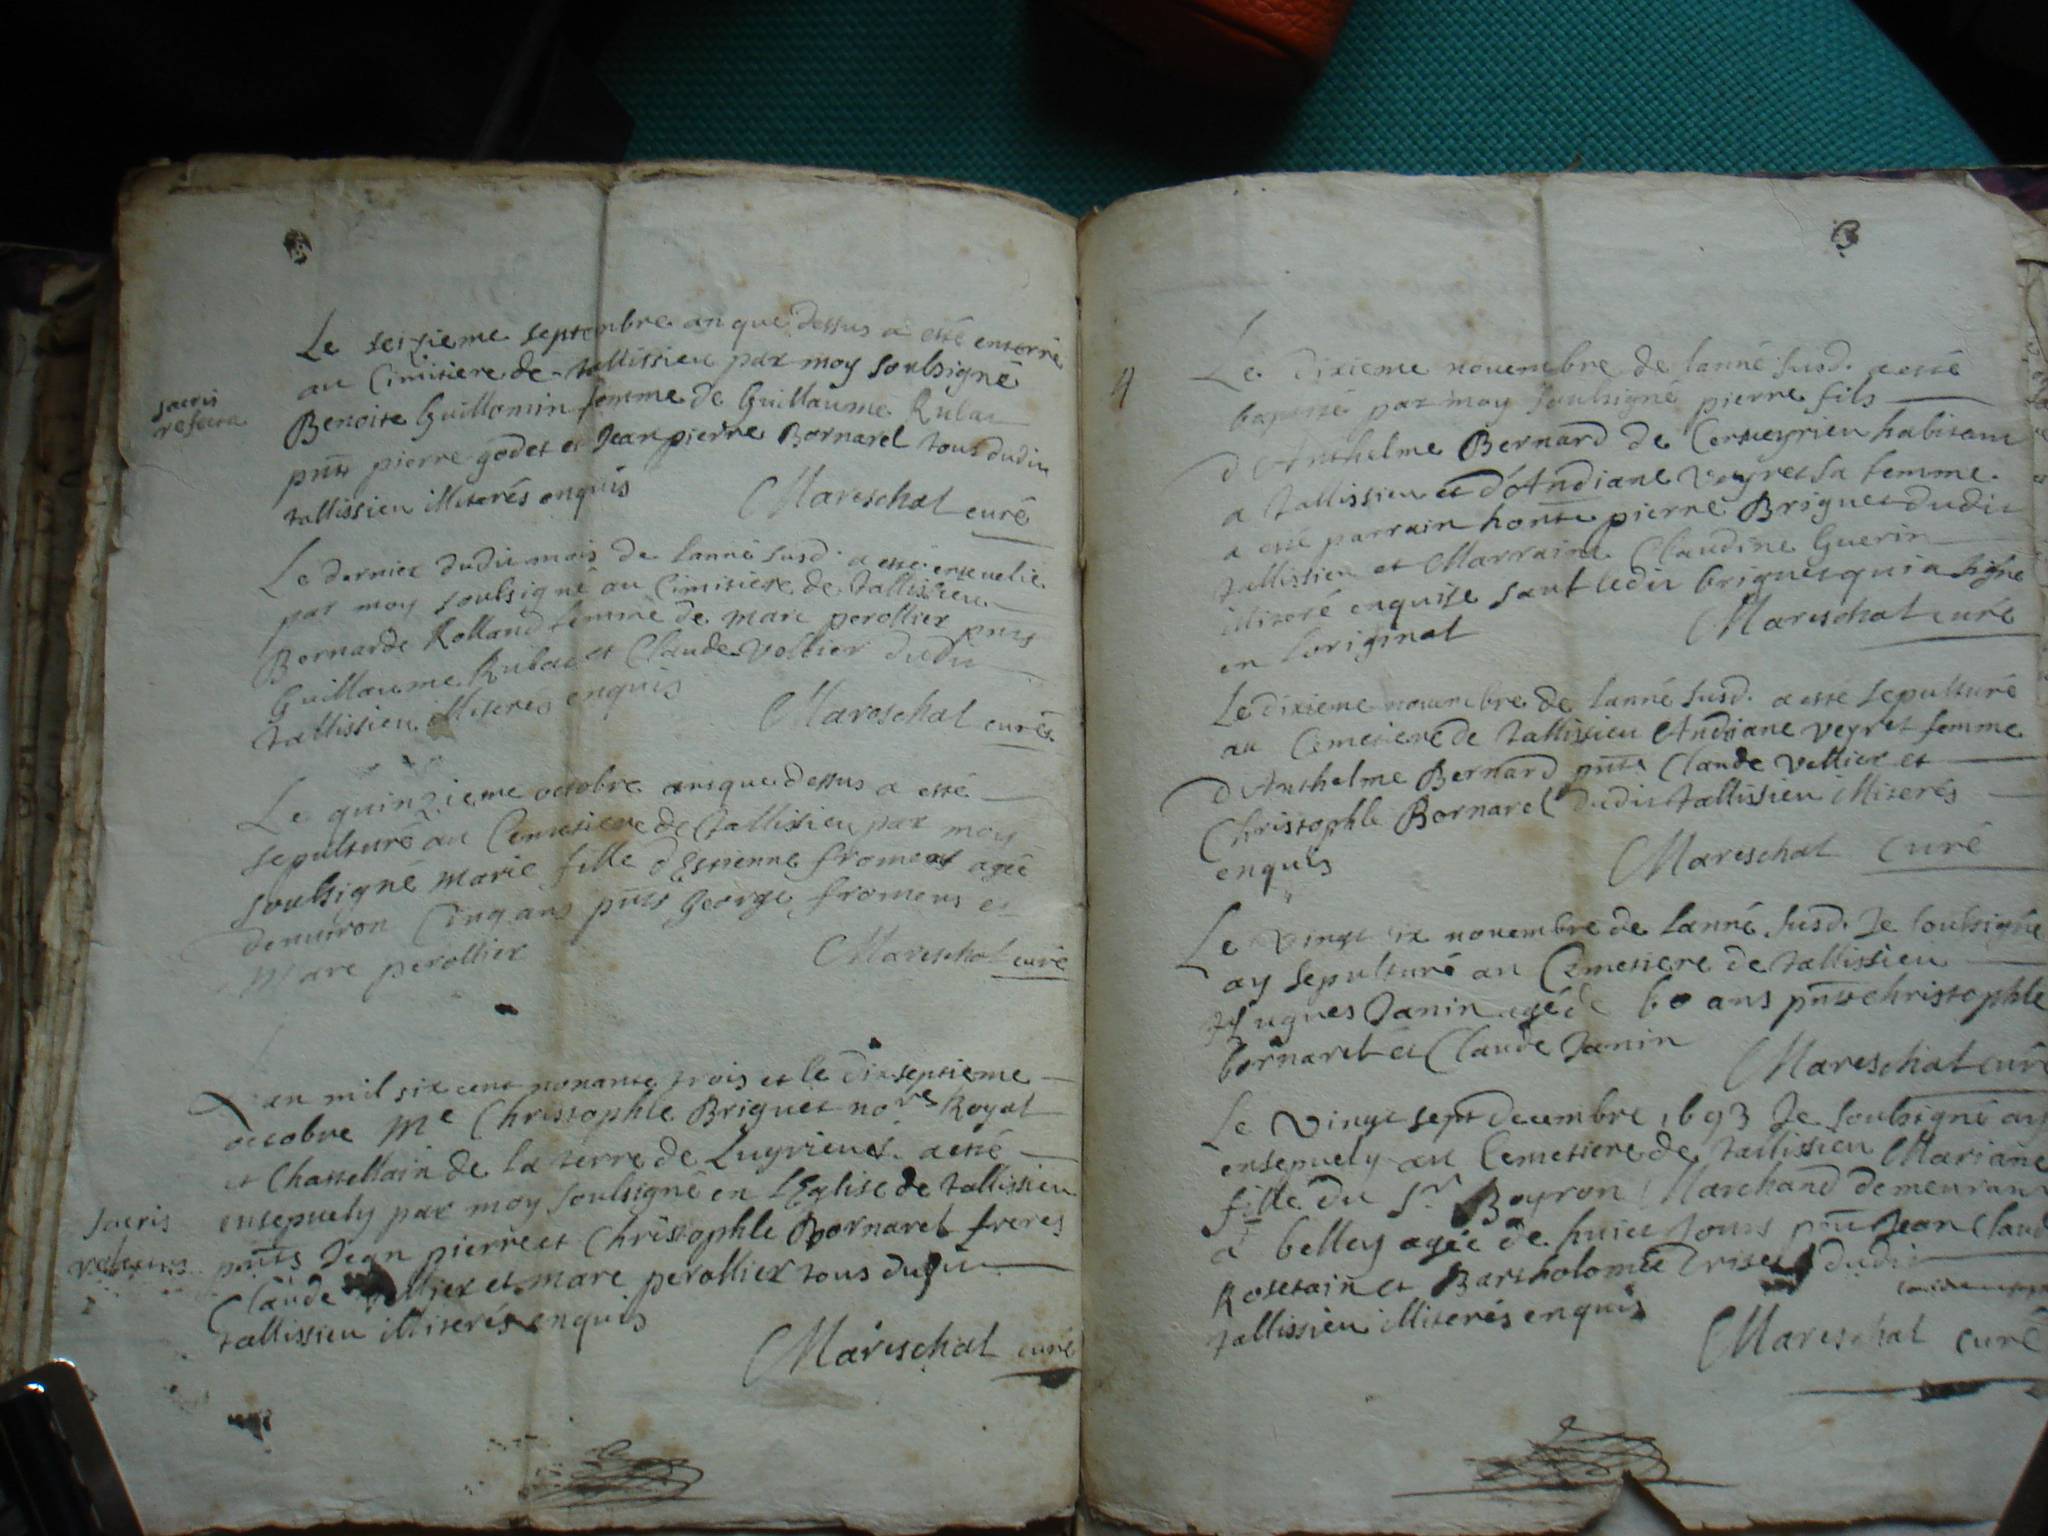 Le seizieme septembre an que dessus a esté enterré
au Cimitiere de tallissieu par moy soubsigné
sacris
refecta
Benoite Guillomin femme de Guillaume Rubat
pnts pierre godet et Jean pierre Bornarel tous dudit
tallissieu illiterés enquis
Mareschal curé
Le dernier dudit mois de lanné susd. a esté ensevelie
par moy soubsigné au Cimitiere de tallissieu
Bernarde Rolland femme de marc perollier pnts
Guillaume Rubat et Claude Vollier dudit
tallissieu illiterés enquis
Mareschal curé
Le quinzieme octobre ansque dessus a esté
sepulturé au Cemetiere de tallissieu par moy
soubsigné Marie fille d'Estienne froment agée
denviron Cinq ans pnts George froment et
Marc perollier
Mareschal curé
Lan mil six cent nonante trois et le dixseptieme
octobre Me Christophle Briguet nore Royal
et Chastellain de la terre de Luyrieux a esté
ensepuely par moy soubsigné en l'Eglise de tallissieu
sacris
pnts Jean pierre et Christophle Bornarel freres
Claude et marc perollier tous dudit
tallissieu illiterés enquis
Mareschal curé
3
Le dixieme novembre de lanné susd. a esté
baptisé par moy soubsigné pierre fils
d'Anthelme Bernard de Cerveyrieu habitant
a tallissieu et d'Andiane Veyret sa femme
a esté parrain honte pierre Briguet dudit
tallissieu et Marraine Claudine Guerin
illiteré enquise sauf ledit briguet qui a signé
en loriginal
Mareschal curé
Le dixieme novembre de lanné susd. a esté sepulturé
au Cemetiere de tallissieu Andiane veyret femme
d'Anthelme Bernard pnts Claude Vollier et
Christophle Bornarel dudit tallissieu illiterés
enquis
Mareschal curé
Le vingt six novembre de lanné susd. Je soubsigné
ay sepulturé au Cemetiere de tallissieu
Hugues Janin agé de 60 ans pnts christophle
bornarel et Claude Janin
Mareschal curé
Le vingt sept decembre 1693 Je soubsigné ay
ensepuely au Cemetiere de tallissieu Mariane
fille du Sr Boyron Marchand demeurant
a belley agée de huict jours pnts Jean Claude
Rosetain et Bartholomée dudit
tallissieu illiterés enquis
Mareschal curé